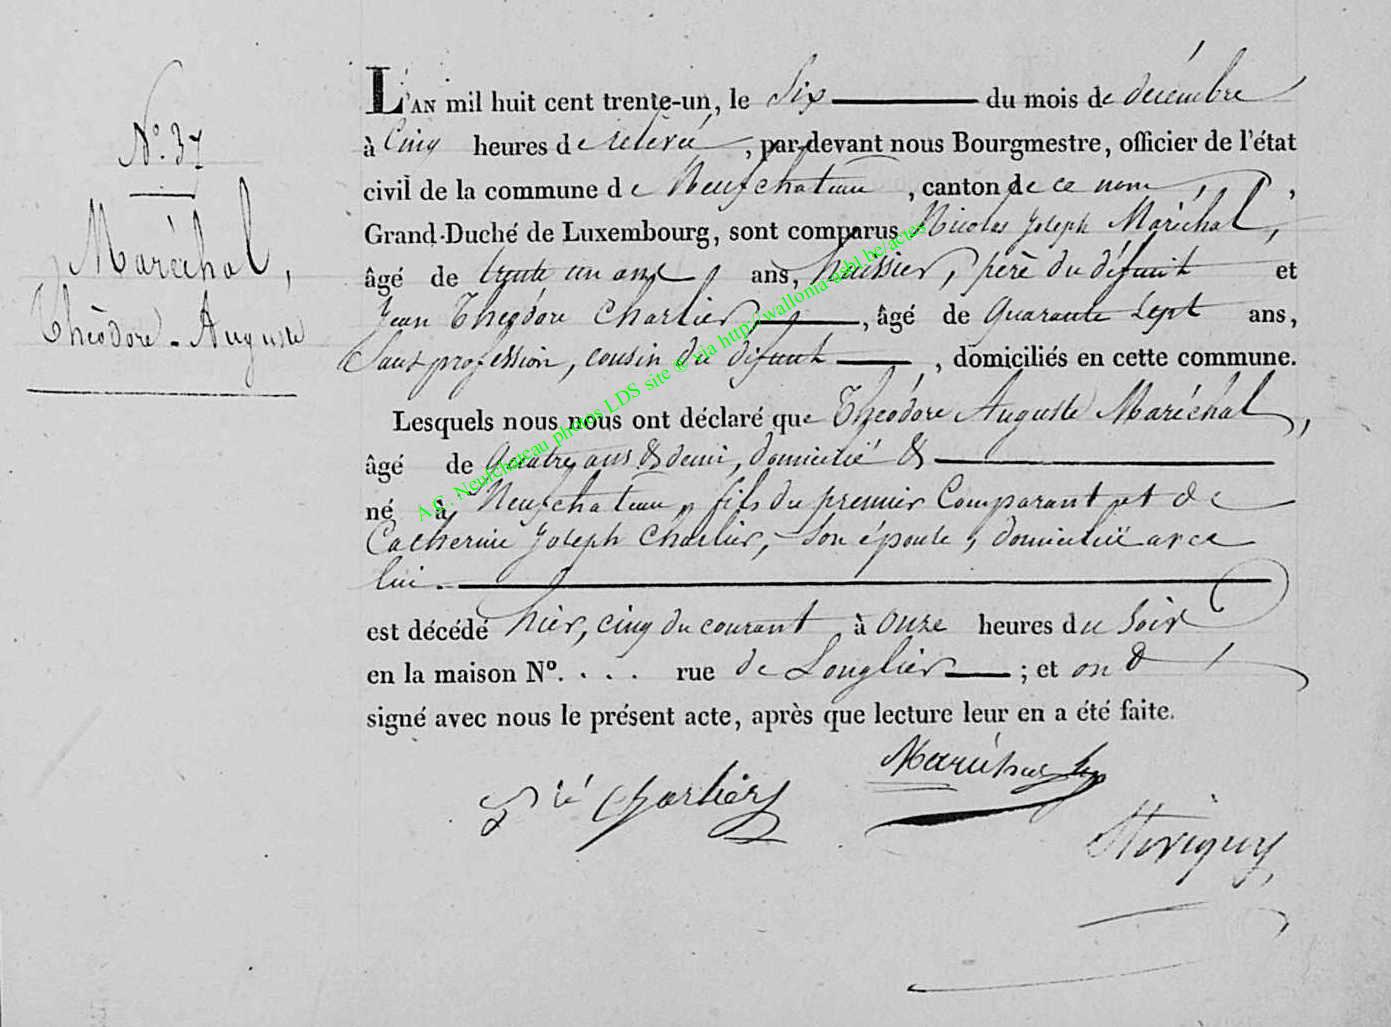 N.° 37
Maréchal,
Théodore - Auguste
L'AN mil huit cent trente-un, le Six du mois de décembre
à Cinq heures de relevée, par-devant nous Bourgmestre, officier de l'état
civil de la commune de Neufchateau, canton de ce nom,,
Grand-Duché de Luxembourg, sont comparus Nicolas Joseph Maréchal,
âgé de trente un ans, ans, huissier, père du défunt et
Jean Théodore Charlier, âgé de Quarante Sept ans,
Sans profession, cousin du défunt, domiciliés en cette commune.
Lesquels nous nous ont déclaré que Théodore Auguste Maréchal,
âgé de Quatre ans & demi, domicilié &
né à Neufchateau, fils du premier Comparant et de
Catherine Joseph Charlier, son épouse, domiciliée avec
lui.
est décédé hier, cinq du courant à onze heures du Soir
en la maison N°. . . . rue de Longlier; et ont
signé avec nous le présent acte, après que lecture leur en a été faite.
Maréchal
Charlier
A.C. Neufchateau photos LDS site © via http://wallonia-asbl.be/actes